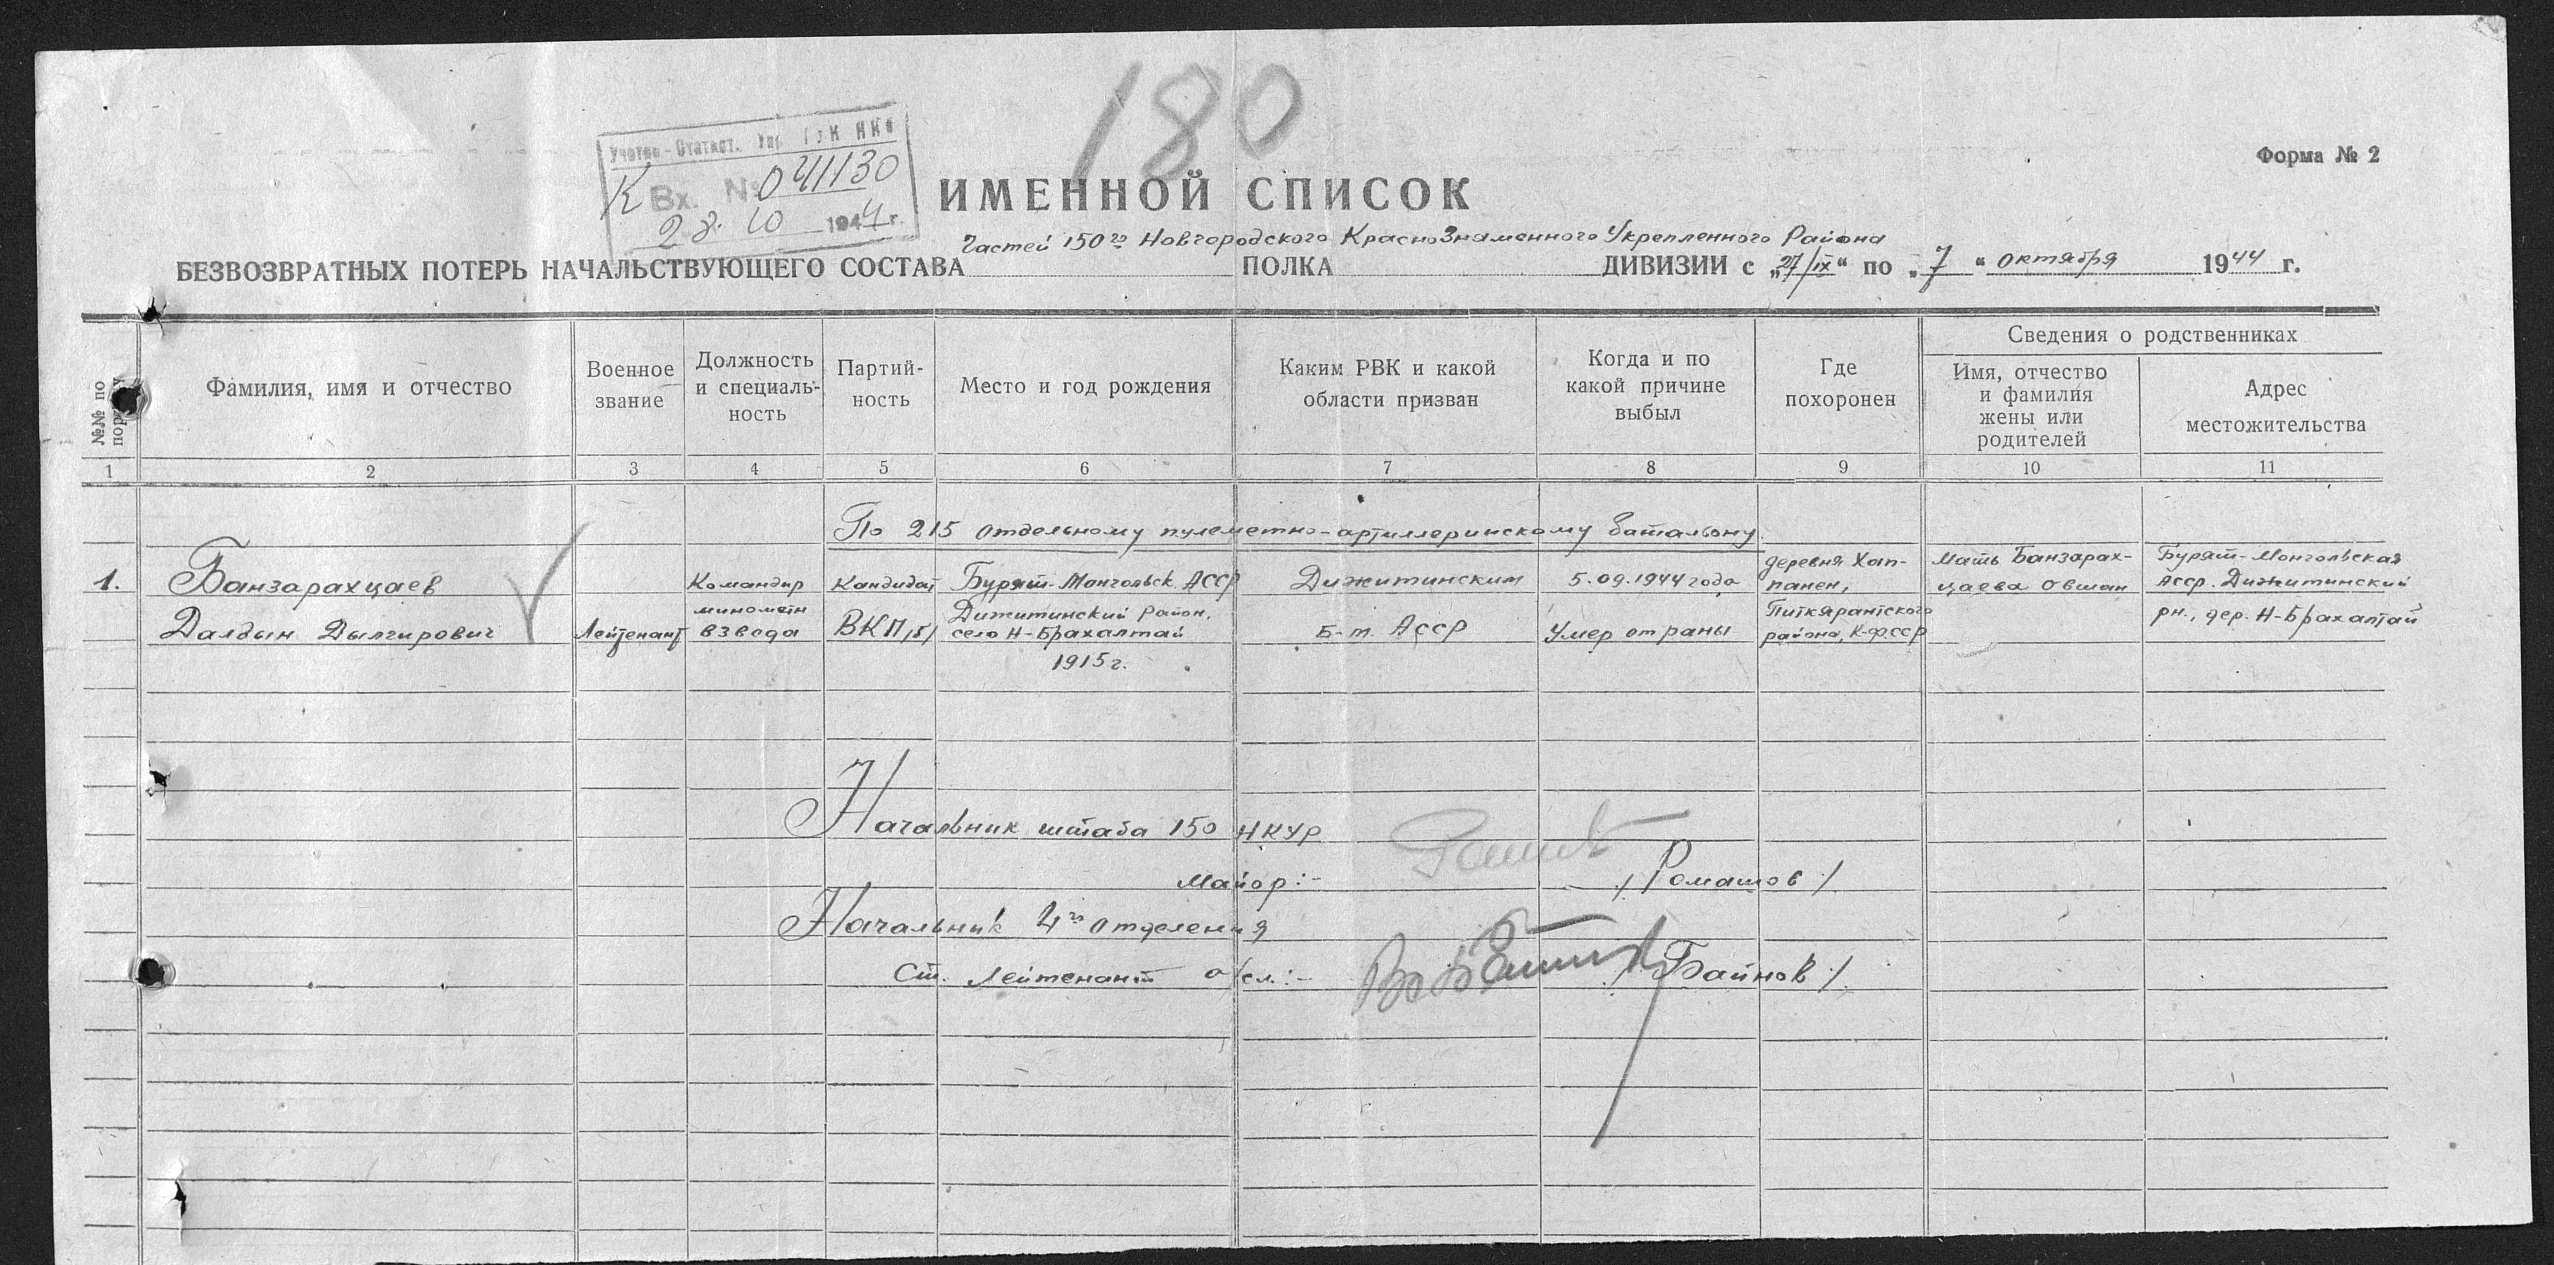 180
Форма № 2
Учетно-Статист. Упр. ГУК НКО
К Вх. № 041130
28. 10 1944 г.
ИМЕННОЙ СПИСОК
Частей 150го Новгородского КрасноЗнаменного Укрепленного Района
БЕЗВОЗВРАТНЫХ ПОТЕРЬ НАЧАЛЬСТВУЮЩЕГО СОСТАВА ПОЛКА ДИВИЗИИ с „27/IX“ по „7“ октября 1944 г.
№№ по
Фамилия, имя и отчество
Военное
звание
Должность
и специаль-
ность
Партий-
ность
Место и год рождения
Каким РВК и какой
области призван
Когда и по
какой причине
выбыл
Где
похоронен
Сведения о родственниках
Имя, отчество
и фамилия
жены или
родителей
Адрес
местожительства
1 2 3 4 5 6 7 8 9 10 11
По 215 отдельному пулеметно-артиллерийскому батальону
1.
Банзарахцаев
Далдын Дылгирович
Лейтенант
Командир
минометн
взвода
Кандидат
ВКП/б/
Бурят-Монгольск. АССР
Дижитинский район,
село Н-Брахалтай
1915 г.
Дижитинским
Б-м АССР
5.09.1944 года
Умер от раны
деревня Хап-
панен,
Питкярантского
района, К-ФССР
Мать Банзарах-
цаева Овшан
Бурят-Монгольская
АССР. Дижитинский
рн., дер. Н-Брахалтай
Начальник штаба 150 НКУР
Майор:- /Ромашов/
Начальник 4го отделения
Ст. Лейтенант а/сл.:- /Байнов/